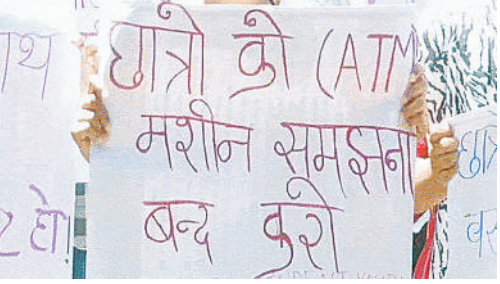 छात्रो को (ATM
मशीन समझना
बन्द करो
हो!